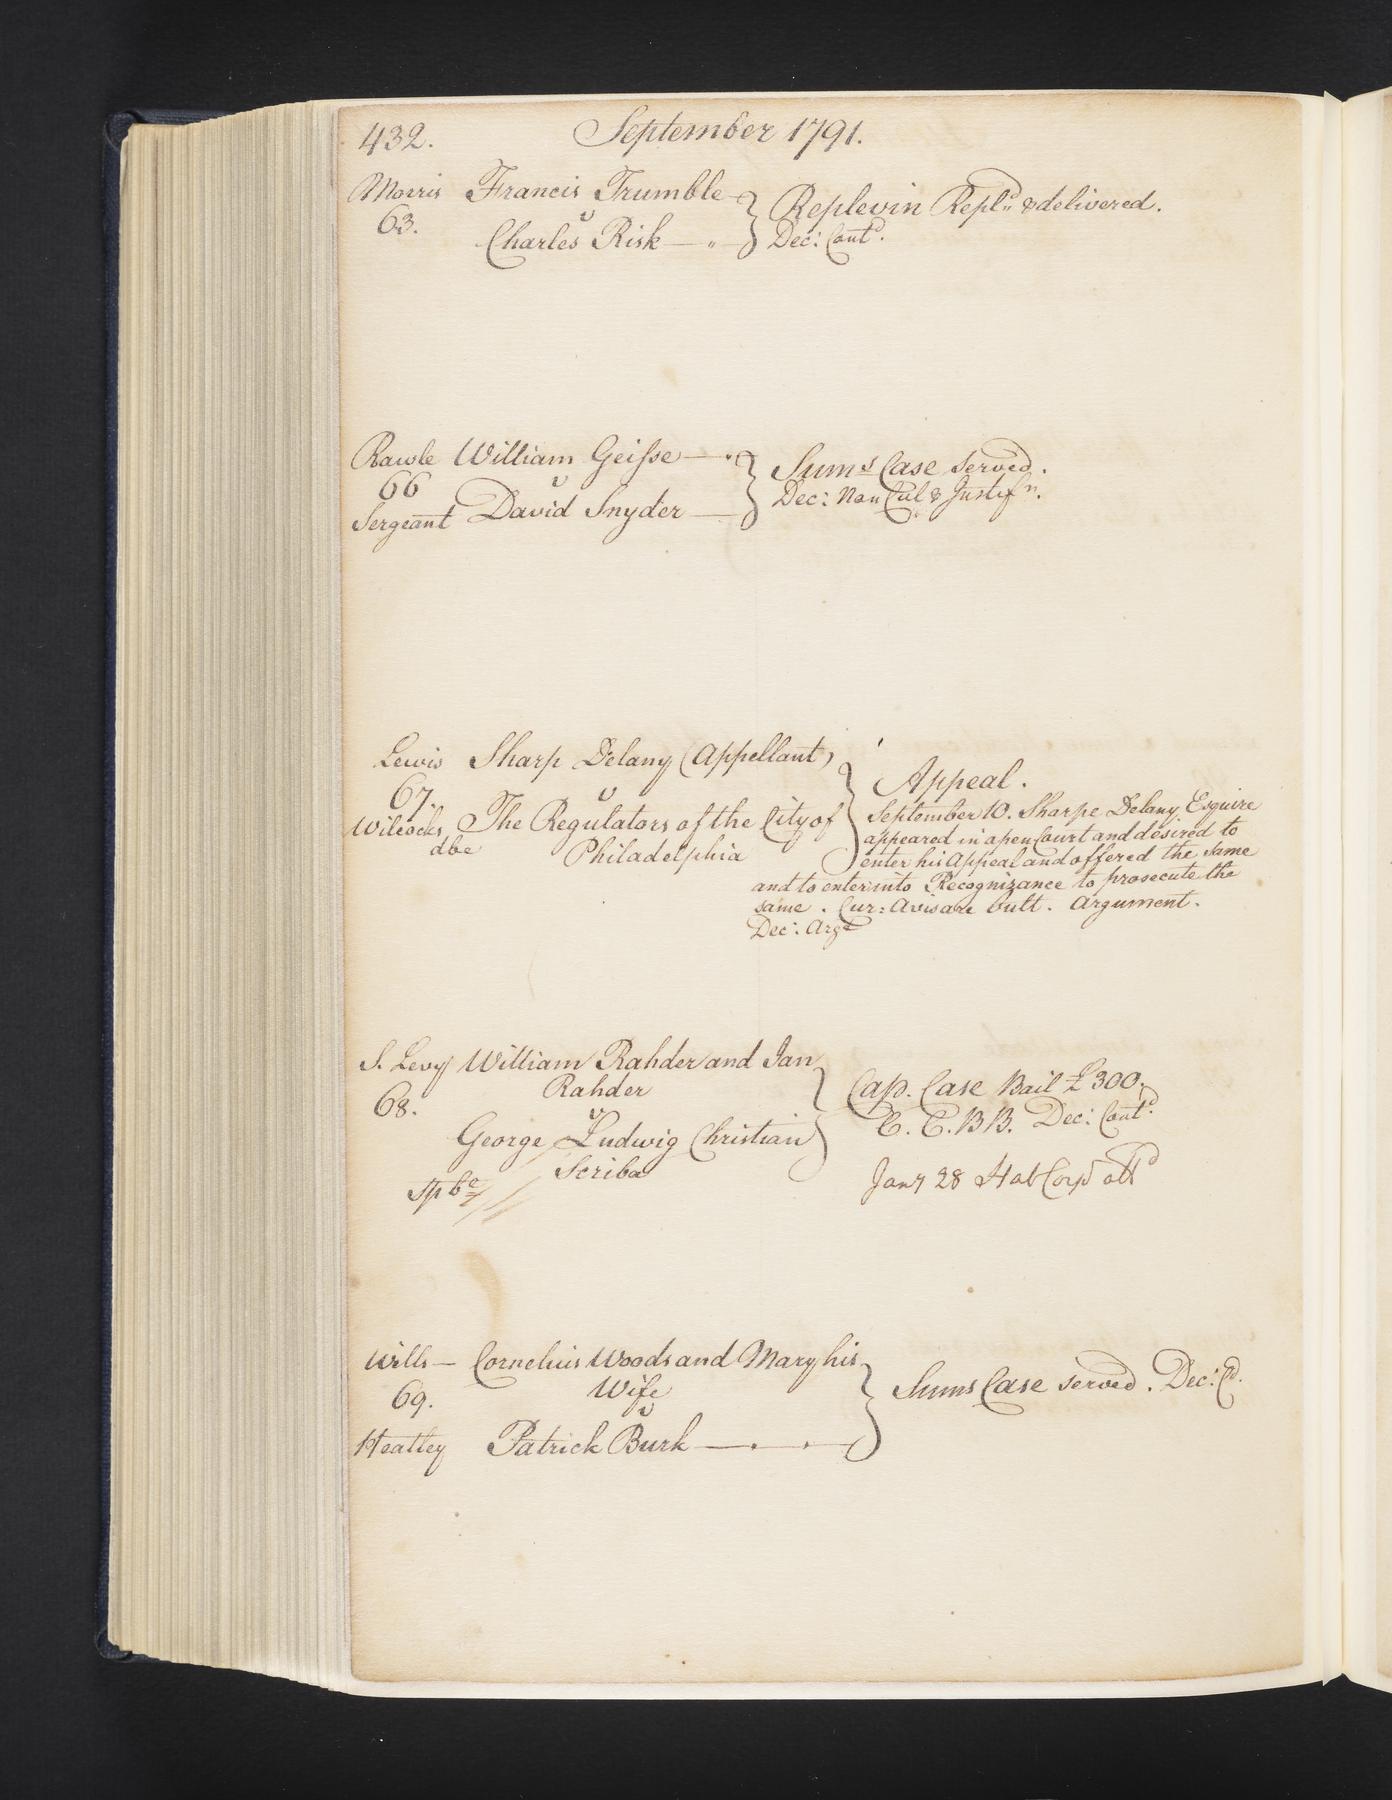 432. September 1791.
Morris Francis Trumble
63. v
Charles Risk
Replevin Repl.d & delivered.
Dec: Cont.d
Rawle William Geisse
66 v
Sergeant David Snyder
Sums Case Served.
Dec: Non Cul & Justif.n
Lewis Sharp Delany (Appellant)
67. v
Wilcocks The Regulators of the City of
dbe Philadelphia
Appeal.
September 10. Sharpe Delany Esquire
appeared in open Court and desired to
enter his Appeal and offered the same
and to enter into Recognizance to prosecute the
same. Cur: Avisare Vult. Argument.
Dec: Argt
S. Levy William Rahder and Jan
Rahder
68. v
George Ludwig Christian
Scriba
Sp be
Cap. Case Bail £300.
C. C. B B. Dec: Cont.d
Jany 28 Hab Corp all.d
Wills Cornelius Woods and Mary his
69. Wife
v
Heatley Patrick Burk
Sums Case served. Dec: C.d